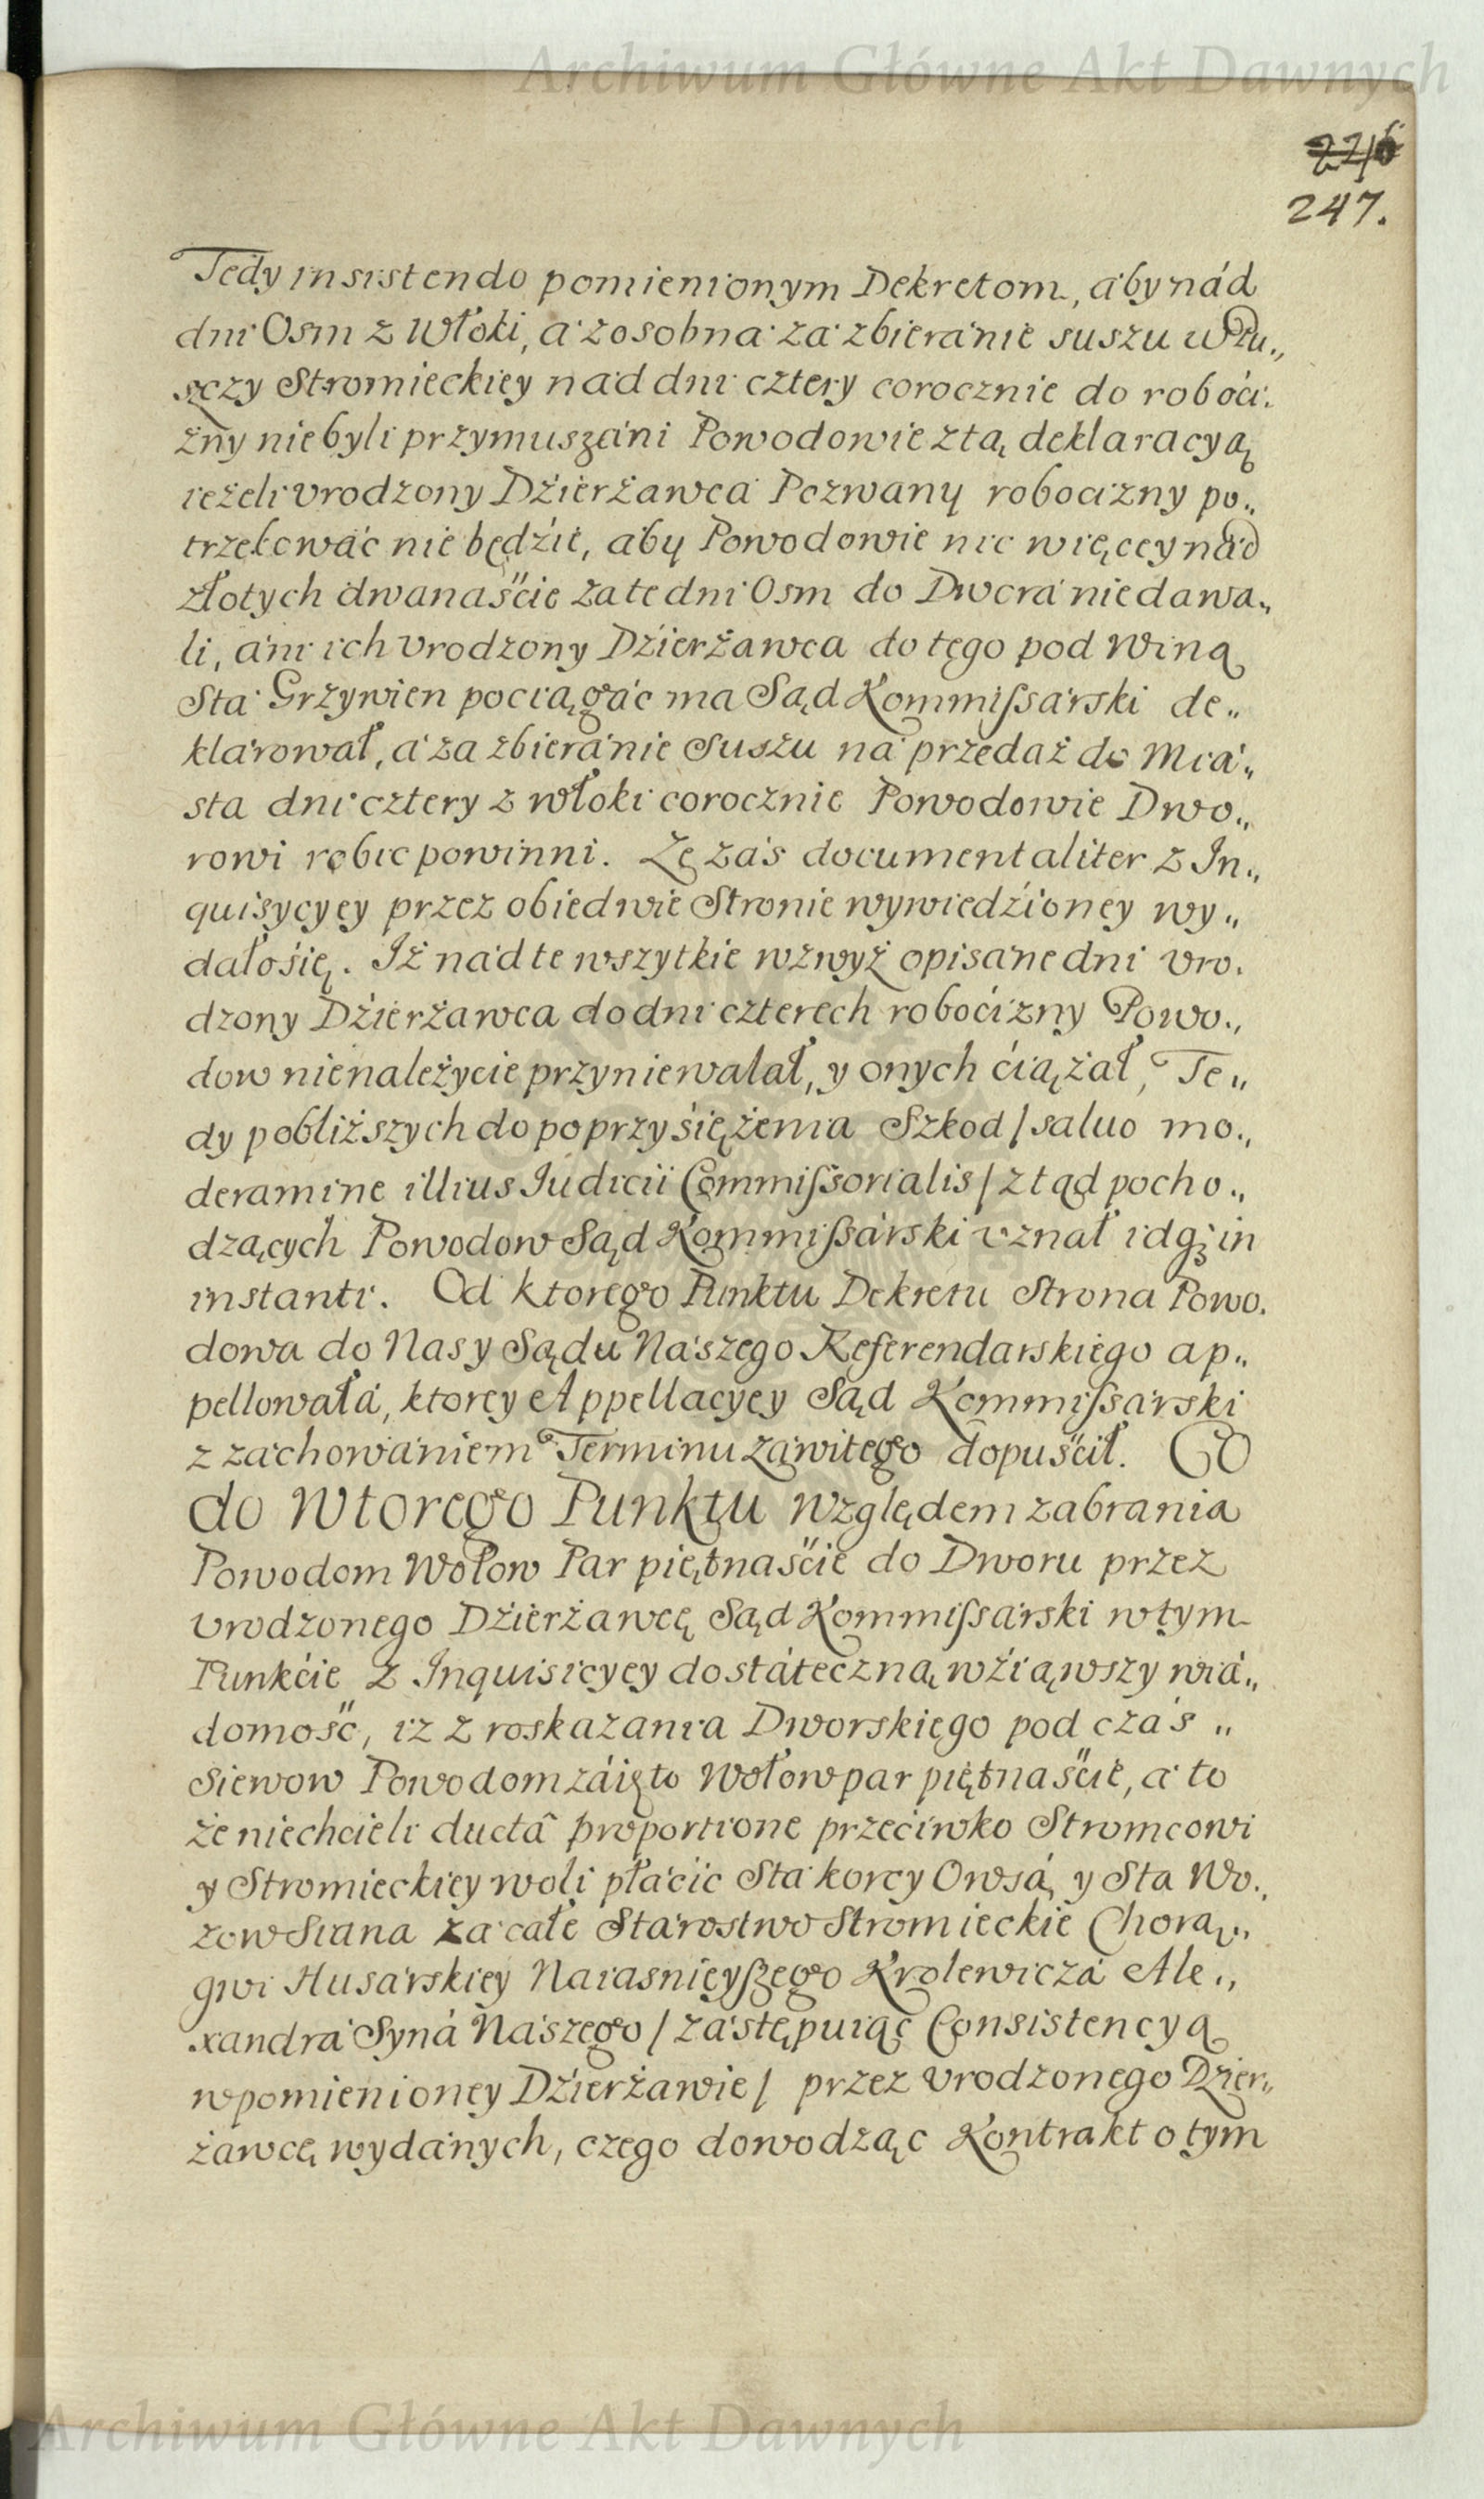 Archiwum Główne Akt Dawnych
247.
Tedy insistendo pomienionym Dekretom, aby nád
dni Osm z Włoki, á zosobna zá zbieránie suszu w Pu„
sczy Stromieckiey nád dni cztery corocznie do roboći.
zny nie byli przymuszáni Powodowie ztą deklaracyą
ieżeli Vrodzony Dźierżawca Pozwany roboćizny po„
trzebowáć nie będźie, aby Powodowie nic więcey nád
złotych dwanaśćie zá te dni Osm do Dworá nie dawa„
li, áni ich Vrodzony Dźierżawca do tego pod Winą
Stá Grzywien pociągáć ma Sąd Kommiſsárski de„
klárował, á zá zbieránie Suszu ná przedaż do Miá„
sta dni cztery z włoki corocznie Powodowie Dwo„
rowi robić powinni. Ze záś documentaliter z In„
quisycyey przez obiedwie Stronie wywiedźioney wy„
dałośię. Iż nád te wszytkie wzwyż opisáne dni Vro.
dzony Dźierżawca do dni czterech roboćizny Powo„
dow nienależycie przyniewalał, y onych ćiążał, Te„
dy pobliższych do poprzyśiężenia Szkod / saluo mo„
deramine illius Iudicii Commiſsorialis / ztąd pocho„
dzących Powodow Sąd Kommiſsárski vznał idq; in
instanti. Od ktorego Punktu Dekretu Strona Powo.
dowa do Nas y Sądu Nászego Referendarskiego ap„
pellowałá, ktorey Appellacyey Sąd Kommiſsárski
z záchowániem Terminu záwitego dopuśćił. Co
do Wtorego Punktu Względem zabrania
Powodom Wołow Par piętnaśćie do Dworu przez
Vrodzonego Dźierżawcę Sąd Kommiſsárski w tym
Punkćie z Inquisicyey dostáteczną wźiąwszy wiá„
domość, iz z roskazania Dworskiego pod czás „
Siewow Powodom záięto Wołow par piętnaśćie, á to
że niechcieli ductâ proportione przećiwko Stromcowi
y Stromieckiey woli płáćić Stá korcy Owsá, y Sta Wo„
zow Siana zá całe Stárostwo Stromieckie Chorą„
gwi Husárskiey Naiasnieyſzego Krolewiczá Ale„
xandrá Syná Nászego / zástępuiąc Consistencyą
w pomienioney Dźierżawie / przez Vrodzonego Dzier„
żawcę wydánych, czego dowodząc Kontrakt o tym
Archiwum Główne Akt Dawnych